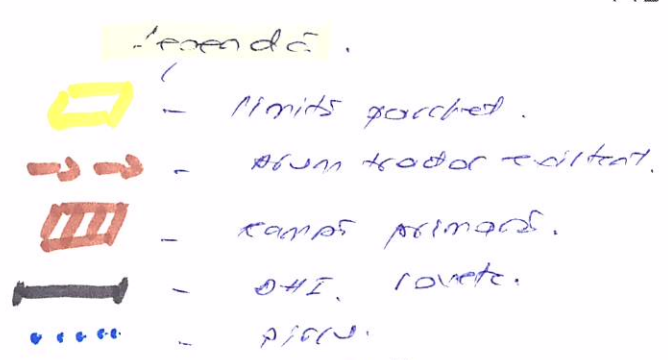 Legendă.
- limită parchet.
- Drum tractor existent.
- rampă primară.
- OHI. Lovete.
- pîrîu.